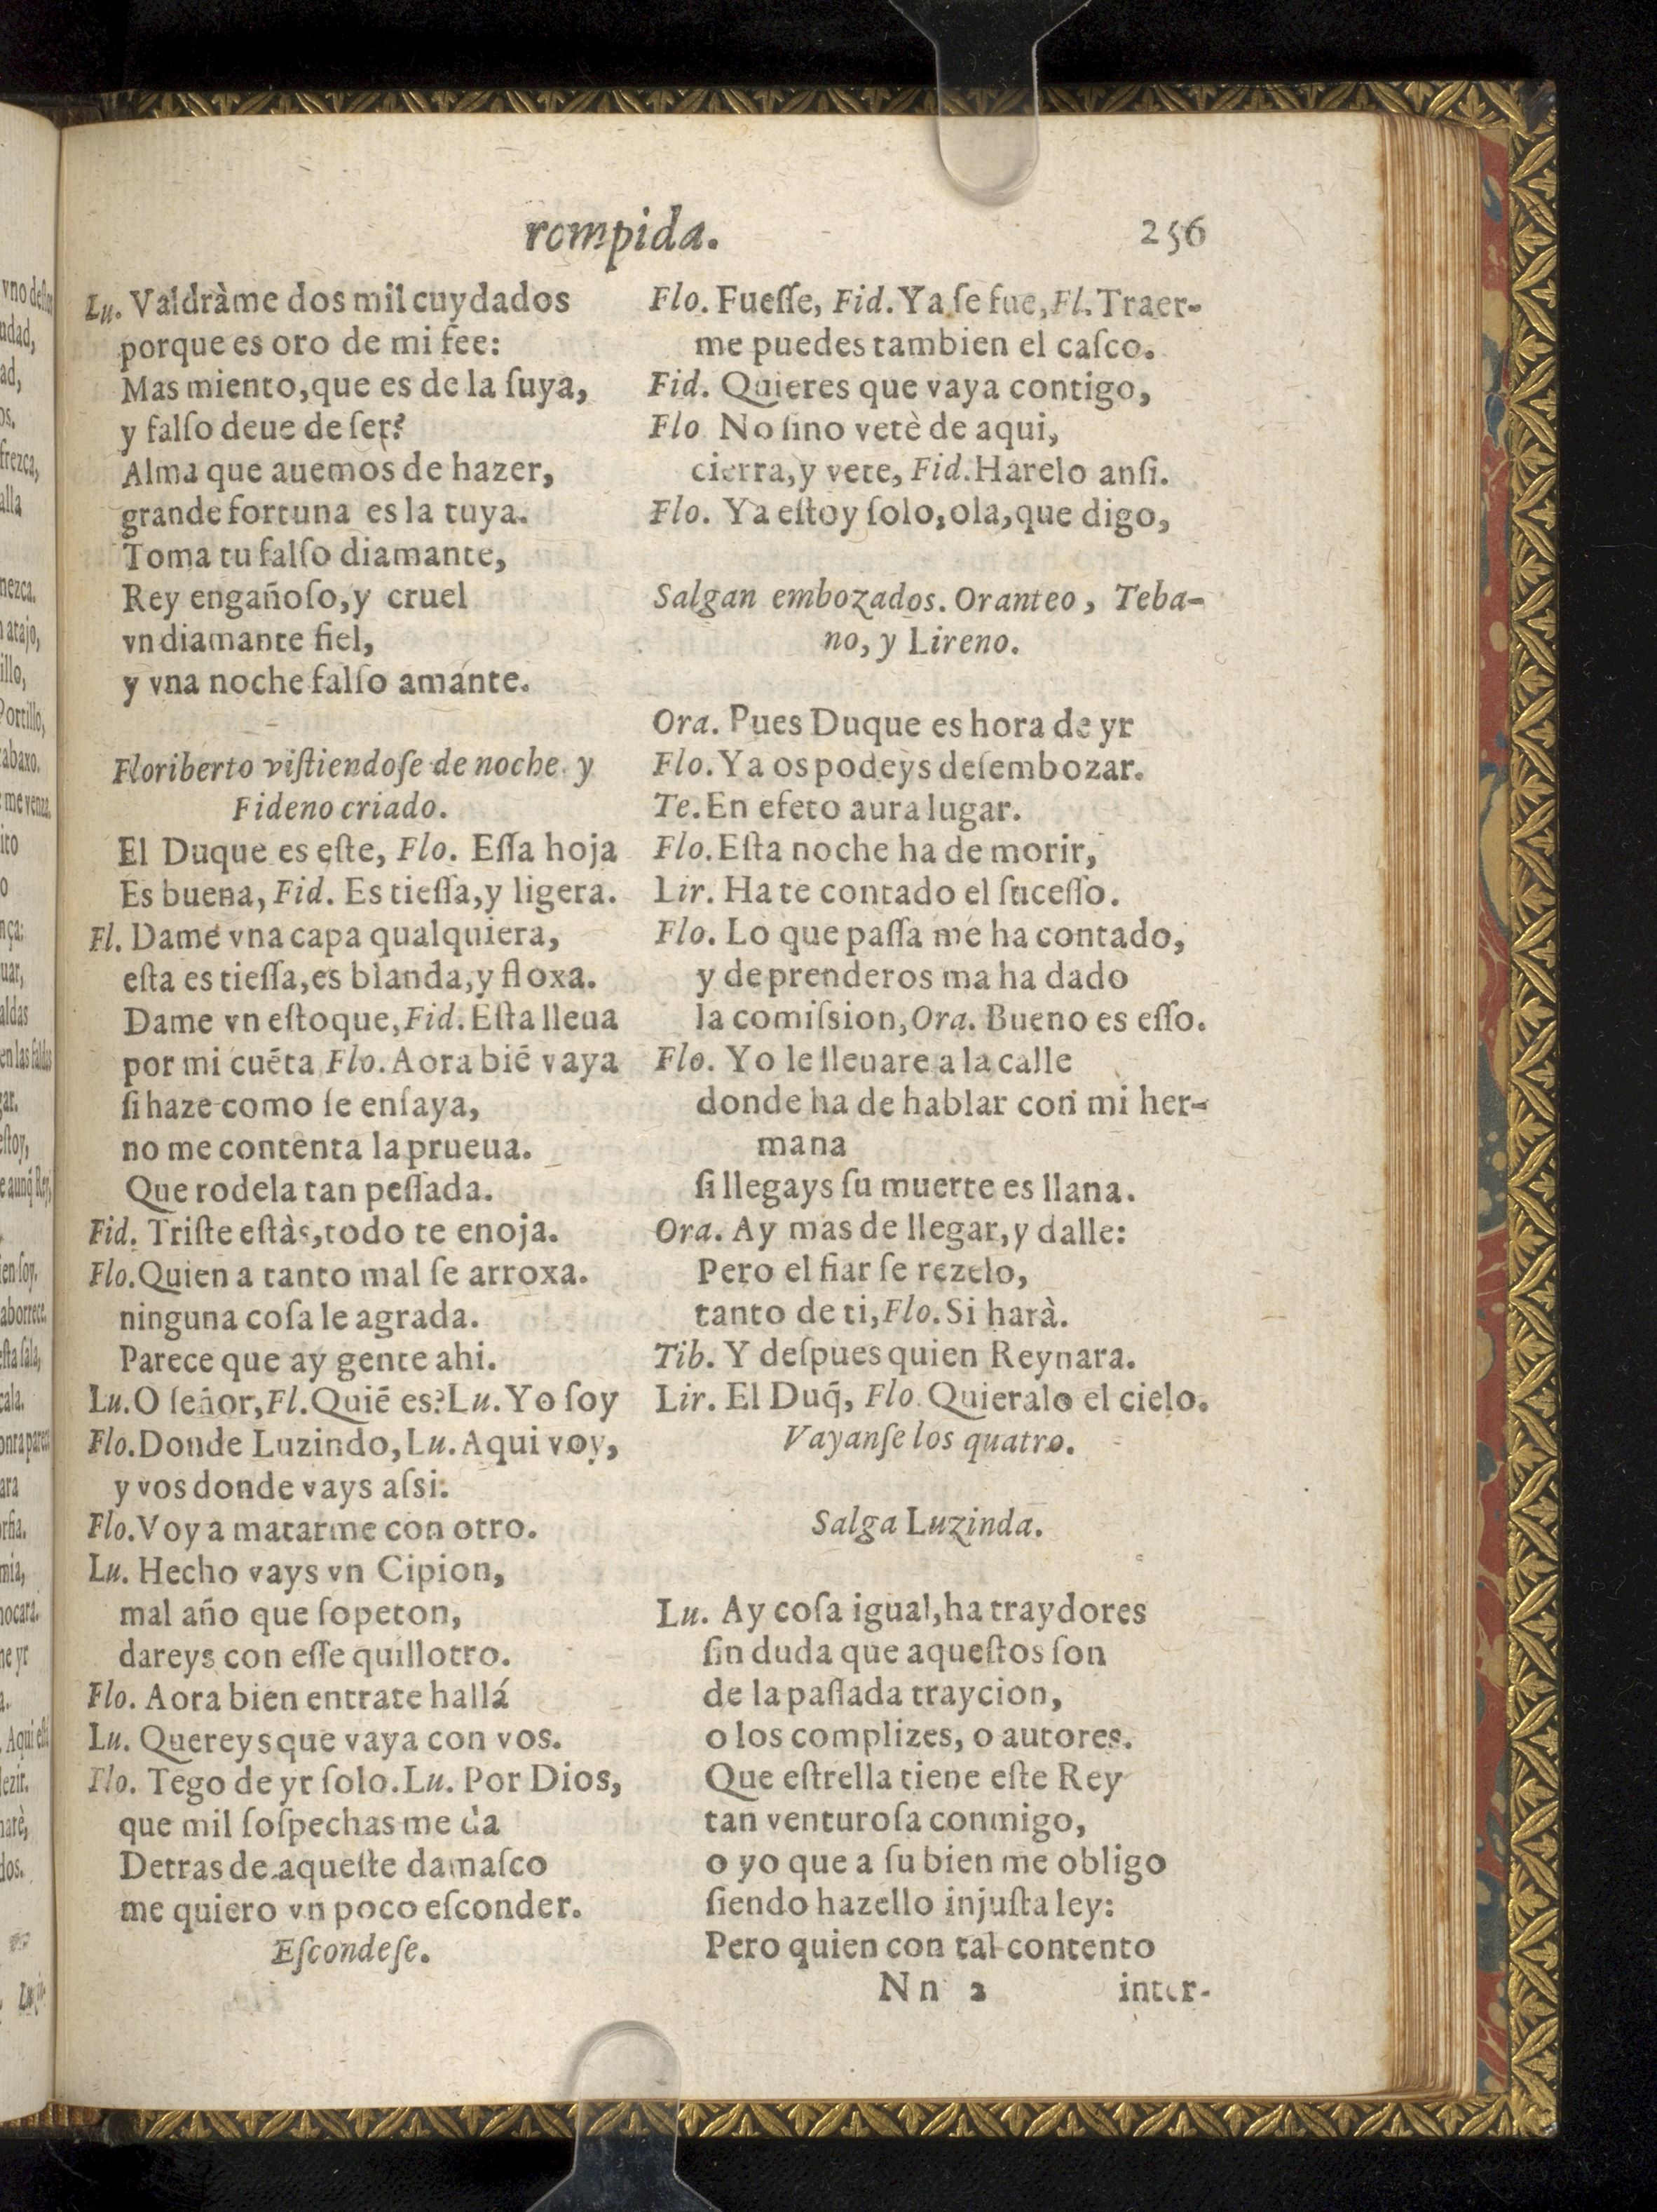 rompida. 256
Lu. Valdràme dos mil cuydados
porque es oro de mi fee:
Mas miento, que es de la ſuya,
y falſo deue de ſer?
Alma que auemos de hazer,
grande fortuna es la tuya.
Toma tu falſo diamante,
Rey engañoſo, y cruel
vn diamante fiel,
y vna noche falſo amánte.
Floriberto viſtiendoſe de noche y
Fideno criado.
El Duque es eſte, Flo. Eſſa hoja
Es buena, Fid. Es tieſſa, y ligera.
Fl. Dame vna capa qualquiera,
eſta es tieſſa, es blanda, y floxa.
Dame vn eſtoque, Fid. Eſta lleua
por mi cuēta Flo. Aora biē vaya
ſi haze como ſe enſaya,
no me contenta la prueua.
Que rodela tan peſſada.
Fid. Triſte eſtàs, todo te enoja.
Flo. Quien a tanto mal ſe arroxa.
ninguna coſa le agrada.
Parece que ay gente ahi.
Lu. O ſeñor, Fl. Quiē es? Lu. Yo ſoy
Flo. Donde Luzindo, Lu. Aqui voy,
y vos donde vays aſsi:
Flo. Voy a matarme con otro.
Lu. Hecho vays vn Cipion,
mal año que ſopeton,
dareys con eſſe quillotro.
Flo. Aora bien entrate hallá
Lu. Quereys que vaya con vos.
Flo. Tēgo de yr ſolo. Lu. Por Dios,
que mil ſoſpechas me da
Detras de aqueſte damaſco
me quiero vn poco eſconder.
Eſcondeſe.
Flo. Fueſſe, Fid. Ya ſe fue, Fl. Traer-
me puedes tambien el caſco.
Fid. Quieres que vaya contigo,
Flo No ſino vetè de aqui,
cierra, y vete, Fid. Harelo anſi.
Flo. Ya eſtoy ſolo, ola, que digo,
Salgan embozados. Oranteo, Teba-
no, y Lireno.
Ora. Pues Duque es hora de yr
Flo. Ya os podeys deſembozar.
Te. En efeto aura lugar.
Flo. Eſta noche ha de morir,
Lir. Ha te contado el ſuceſſo.
Flo. Lo que paſſa me ha contado,
y de prenderos ma ha dado
la comiſsion, Ora. Bueno es eſſo.
Flo. Yo le lleuare a la calle
donde ha de hablar con mi her-
mana
ſi llegays ſu muerte es llana.
Ora. Ay mas de llegar, y dalle:
Pero el fiar ſe rezelo,
tanto de ti, Flo. Si harà.
Tib. Y deſpues quien Reynara.
Lir. El Duq̃, Flo. Quieralo el cielo.
Vayanſe los quatro.
Salga Luzinda.
Lu. Ay coſa igual, ha traydores
ſin duda que aqueſtos ſon
de la paſſada traycion,
o los complizes, o autores.
Que eſtrella tiene eſte Rey
tan venturoſa conmigo,
o yo que a ſu bien me obligo
ſiendo hazello injuſta ley:
Pero quien con tal contento
Nn 2 inter-